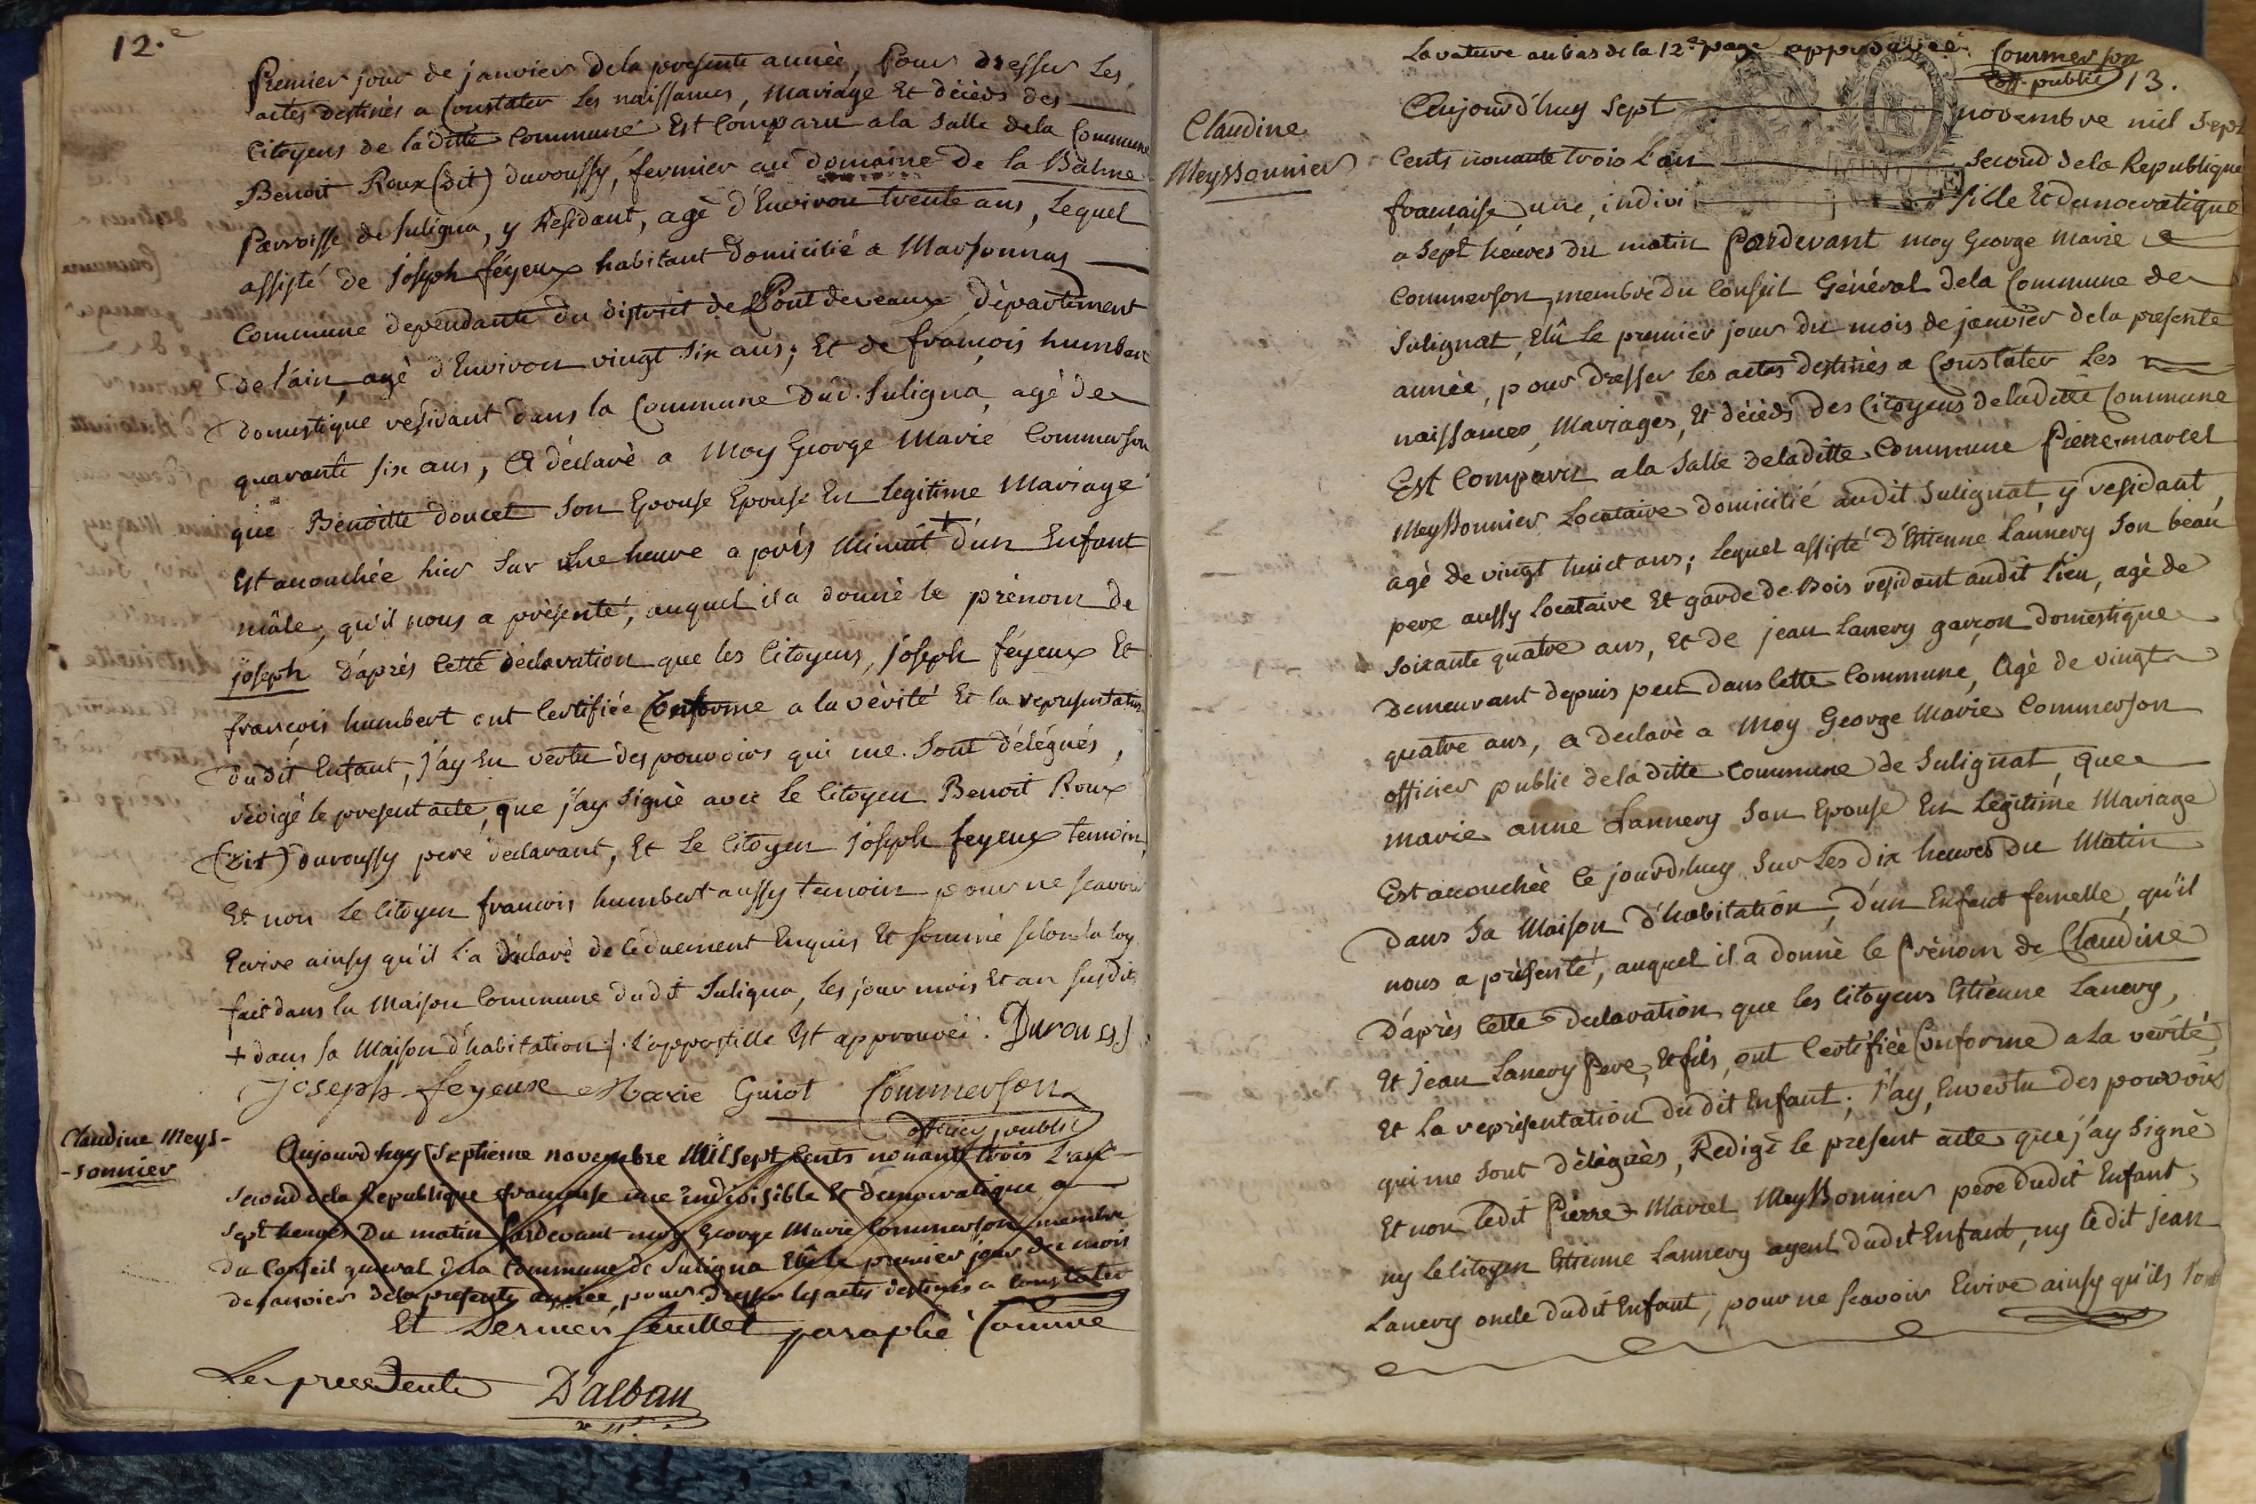 12.e
premier jour de janvier dela presente année, pour dresser les
actes destinés a Constater les naissances, mariage et décéds des
Citoyens de laditte Commune Est Comparu ala Salle dela Commune
Benoit Roux (dit) duroussy, fermier au domaine de la Balme
Parroisse de Suligna, y Résidant, agé d'Environ trente ans, Lequel
assisté de joseph féyeux habitant domicilié a Marsonnas
Commune dependante du district de Pont deveaux département
de l'ain, agé d'Environ vingt six ans; et de françois humbert
domestique residant dans la Commune dud. Suligna, agé de
quarante six ans, a déclaré a Moy George Marie Commerson
que Benoitte doucet Son Epouse Epouse En legitime Mariage
Est accouchée hier Sur Une heure aprés Minuit + d'un Enfant
mâle, qu'il nous a présenté, auquel il a donné le prénom de
joseph d'aprés Cette déclaration que les Citoyens, joseph féyeux Et
françois humbert ont Certifiée Conforme a la vérité Et la representation
dudit Enfant, j'ay En vertu des pouvoirs qui me Sont délégués,
rédigé le present acte, que j'ay Signé avec le Citoyen Benoit Roux
(dit) duroussy pere déclarant, Et Le Citoyen joseph feyeux temoin,
Et non le Citoyen francois humbert aussy temoin pour ne scavoir
Ecrire ainsy qu'il l'a déclaré de ce duement Enquis Et sommé selon la loy
fait dans la Maison Commune dudit Suligna, les jour mois Et an susdits
+ dans sa Maison d'habitation /. L'appostille Est approuvée. Duroussy
Joseph feyeux Marie Guiot Commerson
officier public
Claudine Meys-
-sonnier
Aujourd'huy Septieme novembre Mil Sept Cents nonante trois L'an
Second dela Republique francaise une indivisible Et democratique a
Sept heures Du matin Pardevant moy George Marie Commerson membre
du Conseil general dela Commune de Suligna Elû le premier jour du mois
de janvier dela presente année, pour Dresser les actes destinés a Constater
Et Dernier feuillet paraphé Comme
Le president D'alban
La rature au bas de la 12e page approuvée. Commerson
off. public 13.
Claudine
Meyssonnier
Aujourd'huy Sept novembre mil Sept
Cents nonante trois L'an Second dela Republique
francaise une, indivi sible Et democratique
a Sept heures du matin Pardevant moy George Marie
Commerson, membre du Conseil Général dela Commune de
Sulignat, Elû Le premier jour du mois de janvier dela presente
année, pour dresser les actes destinés a Constater Les
naissances, Mariages, Et décéds des Citoyens deladitte Commune
Est Comparu ala Salle deladitte Commune Pierre marcel
Meyssonnier Locataire domicilié audit Sulignat y residant,
agé de vingt huict ans; lequel assisté d'Etienne Lannery Son beau
pere aussy Locataire Et garde de Bois residant audit Lieu, agé de
Soixante quatre ans, Et de jean Lanery garçon domestique
Demeurant depuis peu dans Cette Commune, Agé de vingt
quatre ans, a declaré a Moy George Marie Commerson
officier public deladitte Commune de Sulignat, que
marie anne Lannery Son Epouse En Légitime Mariage
Est accouchée ce jourd'huy Sur Les dix heures du Matin
Dans Sa Maison d'habitation, d'un Enfant femelle, qu'il
nous a présenté, auquel il a donné le prénom de Claudine
D'après Cette declaration que les Citoyens Etienne Lanery,
Et jean Lanery Pere, Et fils, ont Certifiée Conforme ala vérité,
Et La représentation dudit Enfant; j'ay, En vertu des pouvoirs
qui me Sont délégués, Redigé le present acte que j'ay Signé
Et non ledit Pierre Marcel Meyssonnier pere dudit Enfant,
ny le Citoyen Etienne Lannery ayeul dudit Enfant, ny ledit jean
Lanery oncle dudit Enfant, pour ne scavoir Ecrire ainsy qu'ils l'ont